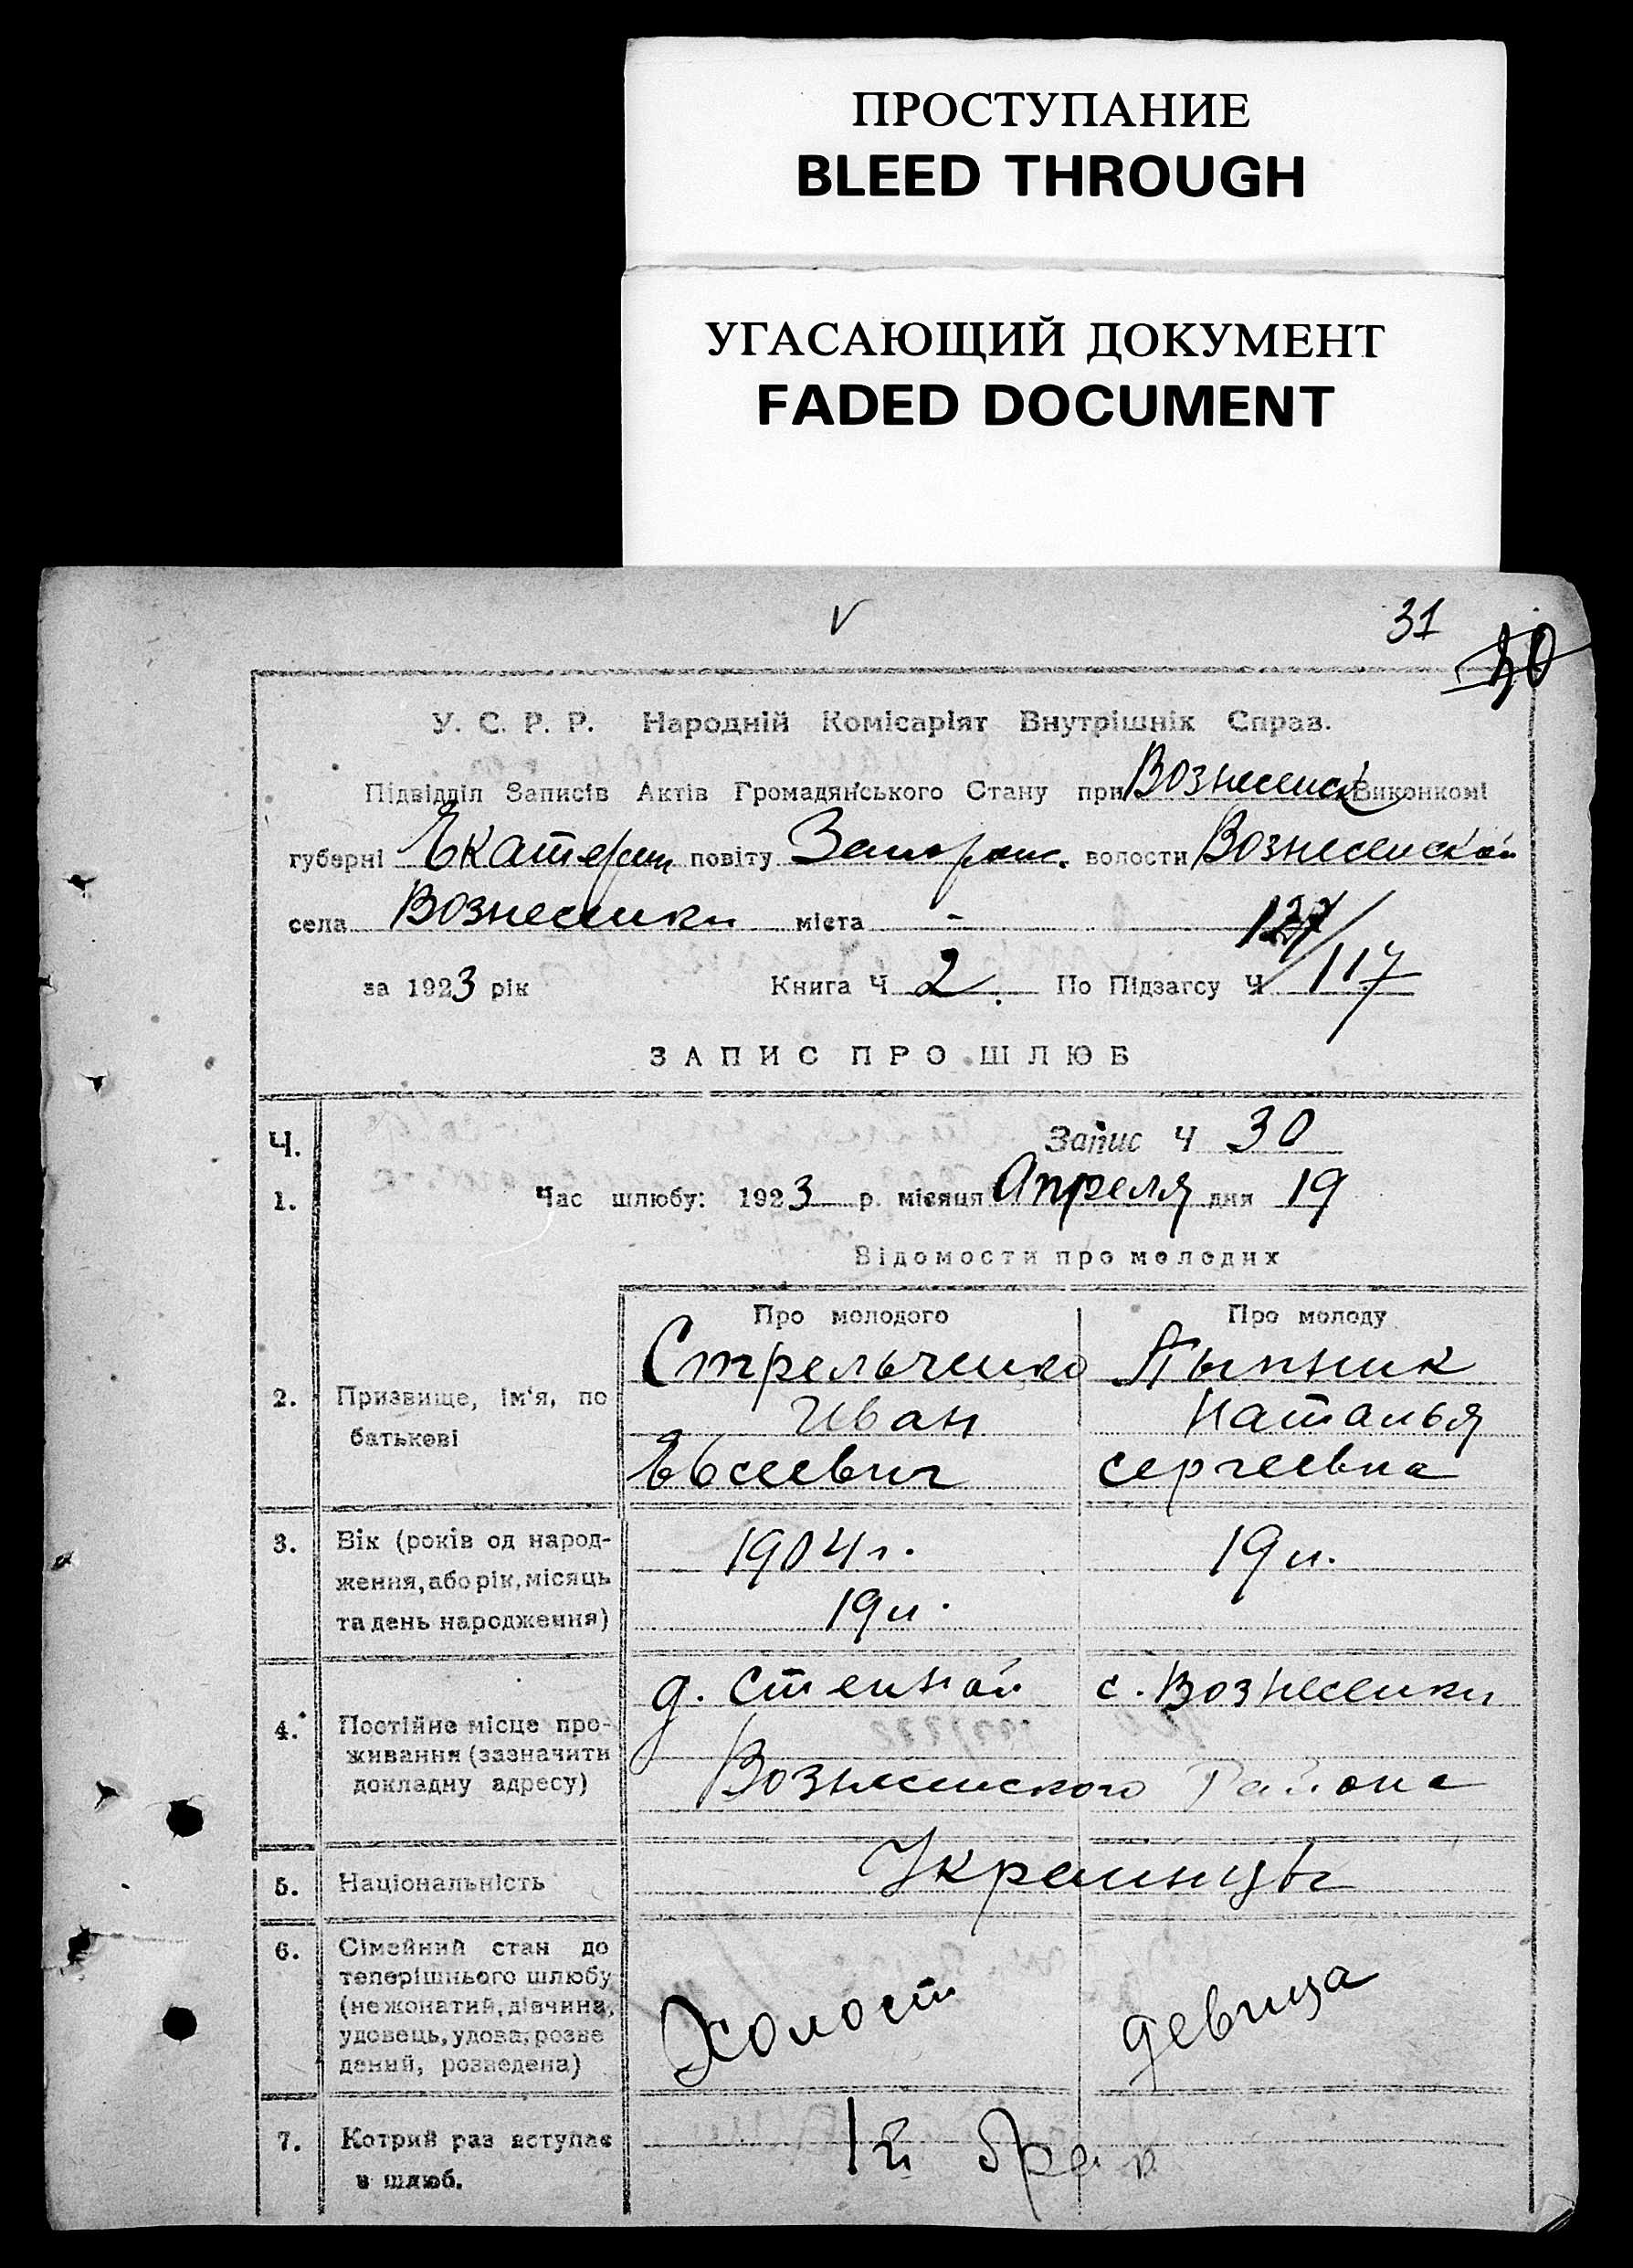 ПРОСТУПАНИЕ
BLEED THROUGH
УГАСАЮЩИЙ ДОКУМЕНТ
FADED DOCUMENT
V
31
У. С. Р. Р. Народній Комісаріят Внутрішніх Справ.
Підвідділ Записів Актів Громадянського Стану при Вознесенск Виконкомі
губерні Екатерин повіту Запорож. волости Вознесенской
села Вознесенки міста -
за 1923 рік Книга Ч 2. По Підзагсу Ч 117
ЗАПИС ПРО ШЛЮБ
Ч. Запис Ч 30
1. Час шлюбу: 1923 р. місяця Апреля дня 19
Відомости про молодих
Про молодого Про молоду
2. Призвище, ім'я, по батькові
Стрельченко
Иван
Евсеевич
Пыпник
Наталья
Сергеевна
3. Вік (років од народ-
ження, або рік, місяць
та день народження)
1904 г.
19 л.
19 л.
4. Постійне місце про-
живання (зазначити
докладну адресу)
д. Степной с. Вознесенки
Вознесенского Района
5. Національність Украинцы
6. Сімейний стан до
теперішнього шлюбу
(нежонатий, дівчина,
удовець, удова, розве
дений, розведена)
Холост девица
7. Котрий раз вступає
в шлюб.
1й брак